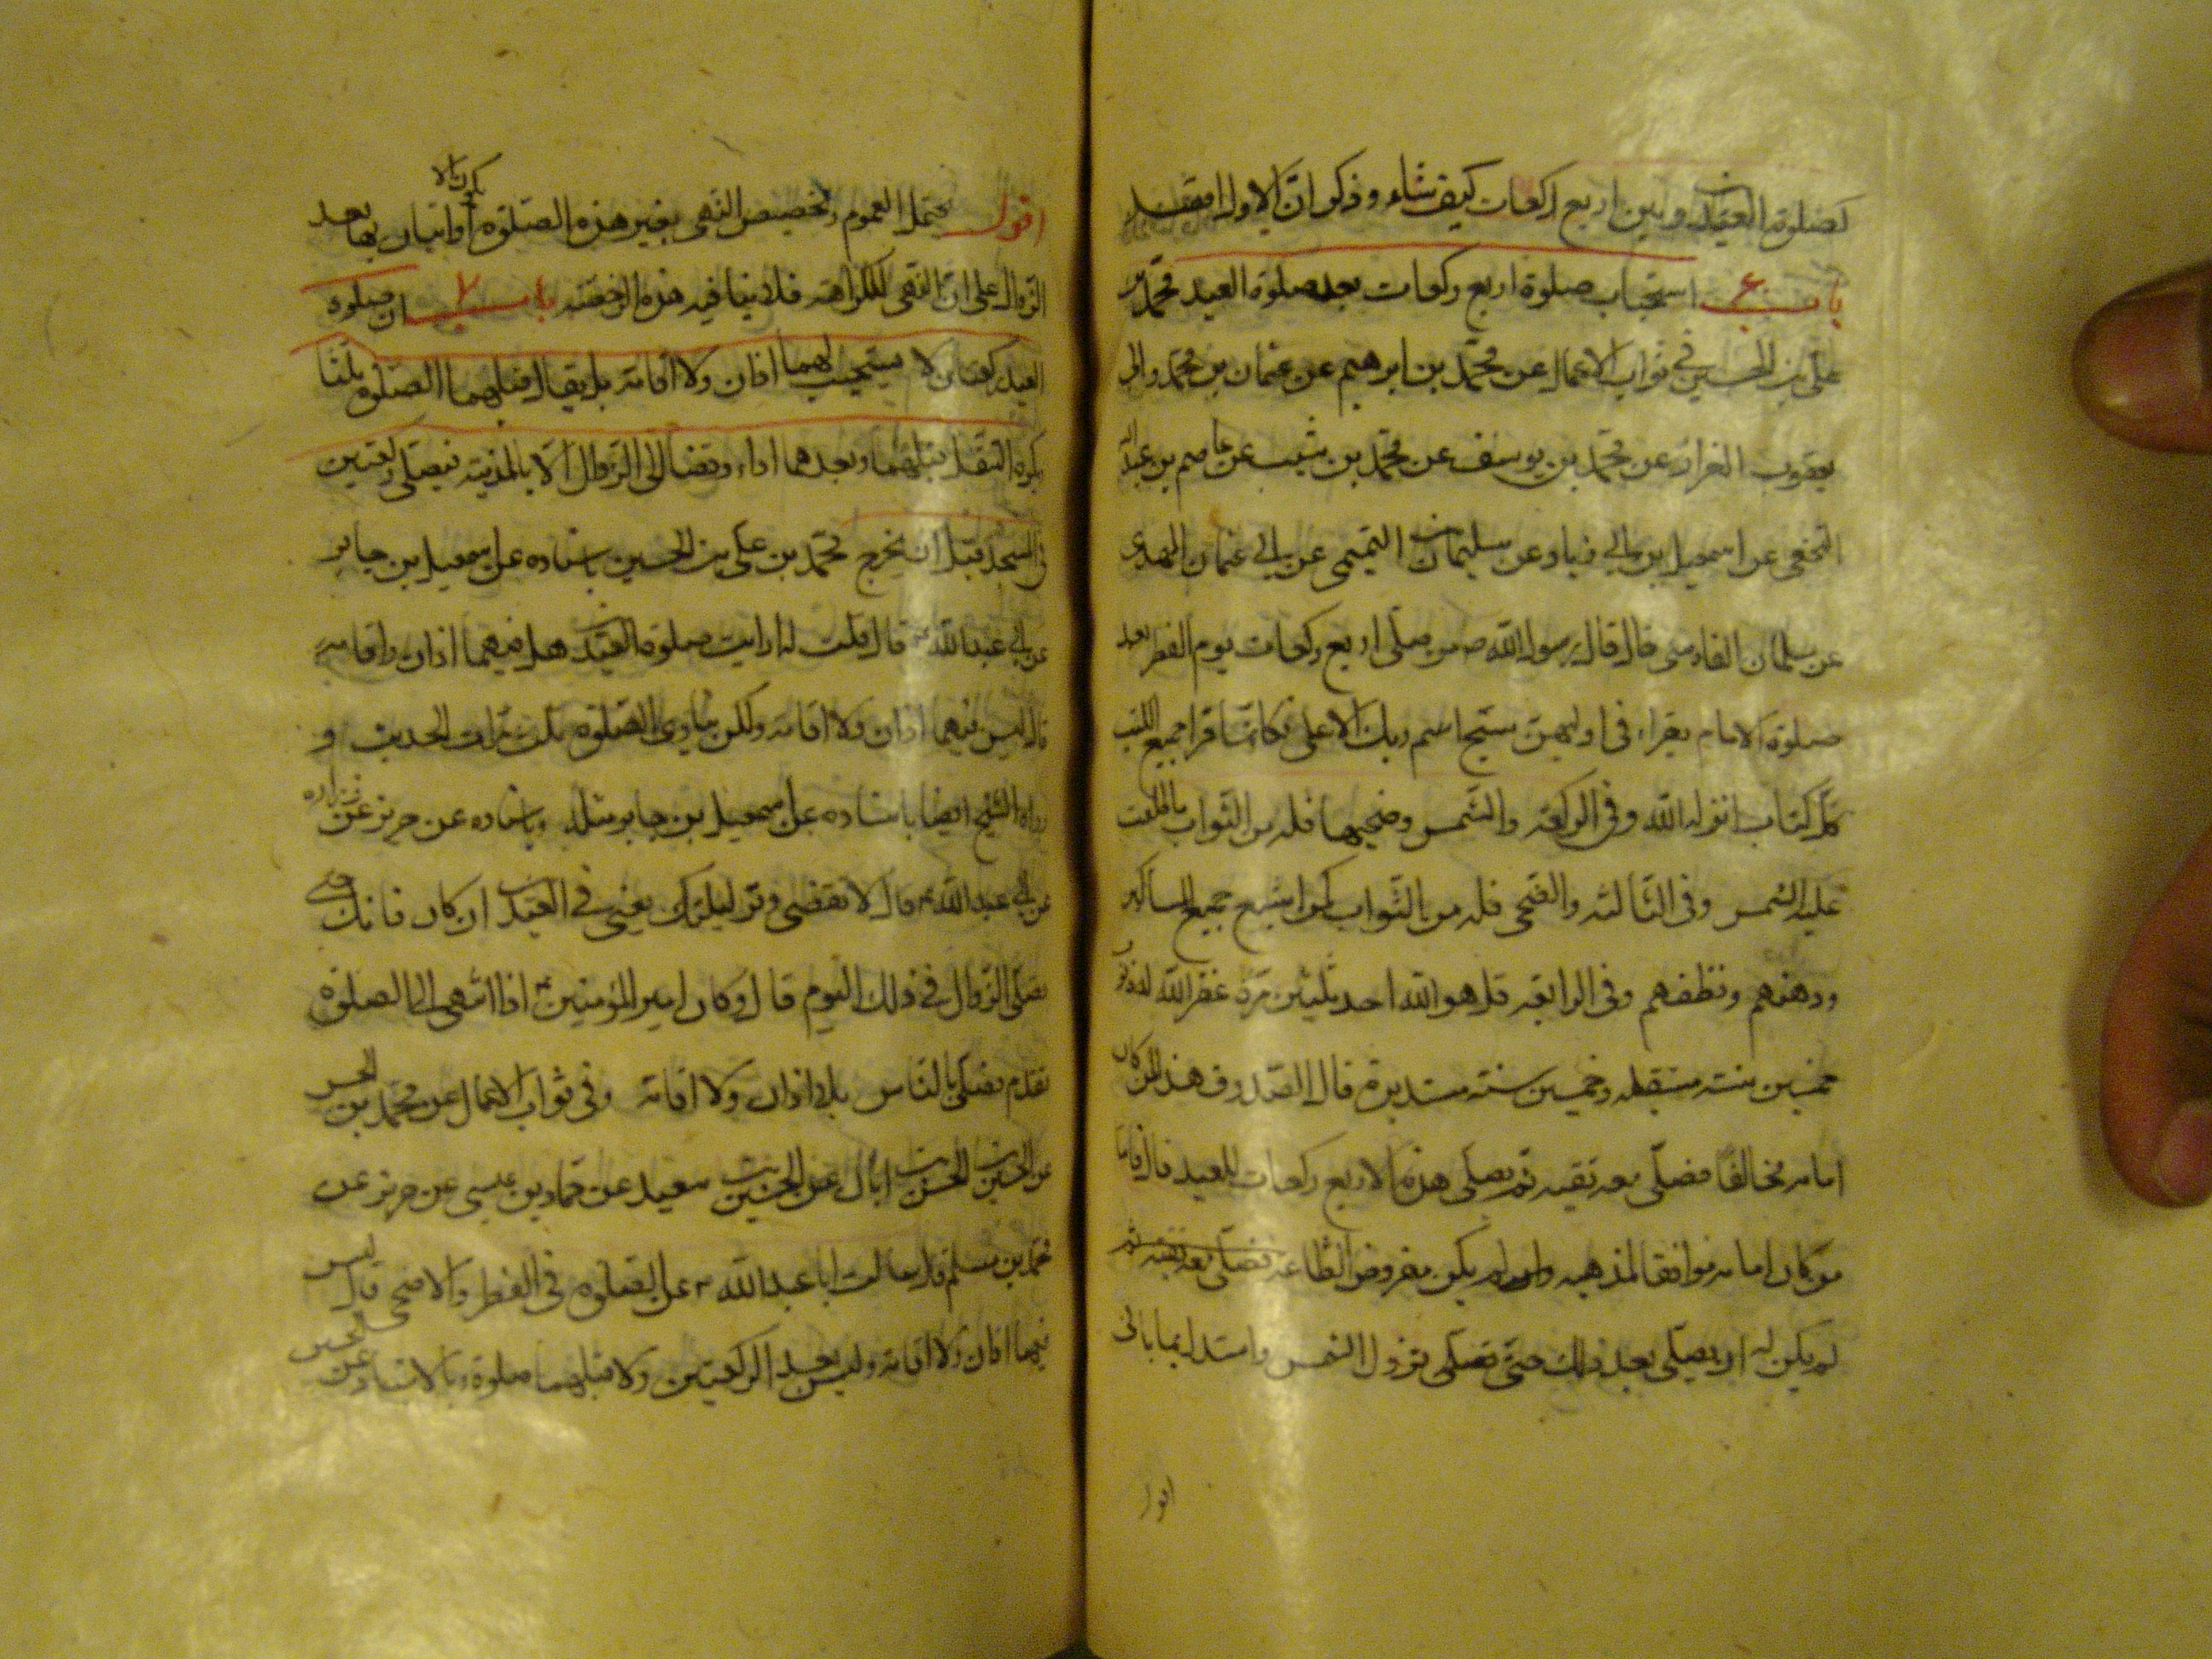 كصلوة العيدين وبين اربع ركعات كيف شاء وذكر ان الاول افضل
باب ۶ استحباب صلوة اربع ركعات بعد صلوة العيد محمد بن
على بن الحسين في ثواب الاعمال عن محمد بن ابرهيم عن عثمان بن محمد وابى
يعقوب القزاز عن محمد بن يوسف عن محمد بن شبيب عن عاصم بن عبد الله
النخعى عن اسمعيل بن ابي زياد عن سليمان التميمى عن ابي عثمان النهدى
عن سلمان الفارسى قال قال رسول الله ص من صلى اربع ركعات يوم الفطر بعد
صلوة الامام يقراء فى اوليهن سبح اسم ربك الاعلى فكانما قرا جميع الكتب
كل كتاب انزله الله وفى الركعة والشمس وضحيها فله من الثواب ما طلعت
عليه الشمس وفى الثالثه والضحى فله من الثواب كمن اشبع جميع المساكين
ودهنهم ونظفهم وفى الرابعة قل هو الله احد ثلثين مرة غفر الله له ذنوب
خمسين سنة مستقبله وخمسين سنة مستدبرة قال الصدوق هذا لمن كان
امامه مخالفا فصلى معه تقيه ثم يصلى هذه الاربع ركعات للعيد قال فاما
من كان امامه موافقا لمذهبه وان لم يكن مفروض الطاعة فصلى معه تقيه ثم
لم يكن له ان يصلى بعد ذلك حتى تزول الشمس واستدل بما ياتى
اقول
اقول يحتمل العموم وتخصيص النهى بغير هذه الصلوة او اتيان بها بعد
يكون الا
الزوال على ان النهى للكراهة فلا ينافيه هذه الرخصة باب ٧ ان صلوة
العيد ركعتان لا يستحب لهما اذان ولا اقامة بل يقال قبلهما الصلوة ثلثا
يكره التنفل قبلهما وبعدهما اداء وقضا الى الزوال الا بالمدينة فيصلى ركعتين
فى المسجد قبل ان يخرج محمد بن على بن الحسين باسناده عن اسمعيل بن جابر
عن ابي عبد الله ع قال قلت له ارايت صلوة العيدين هل فيهما اذان واقامة
قال ليس فيهما اذان ولا اقامة ولكن ينادى الصلوة ثلث مرات الحديث و
رواه الشيخ ايضا باسناده عن اسمعيل بن جابر مثله وباسناده عن حريز عن زرارة
عن ابي عبد الله ع قال لا تقضى وتر ليلتك يعنى في العيدين ان كان فاتك حتى
تصلى الزوال في ذلك اليوم قال وكان امير المؤمنين ع اذا انتهى الى الصلوة
تقدم فصلى بالناس بلا اذان ولا اقامة وفى ثواب الاعمال عن محمد بن الحسن
عن الحسين بن الحسن بن ابان عن الحسين بن سعيد عن حماد بن عيسى عن حريز عن
محمد بن مسلم قال سالت ابا عبد الله ع عن الصلوة فى الفطر والاضحى قال ليس
فيهما اذان ولا اقامة وليس بعد الركعتين ولا قبلهما صلوة وبالاسناد عن الحسين